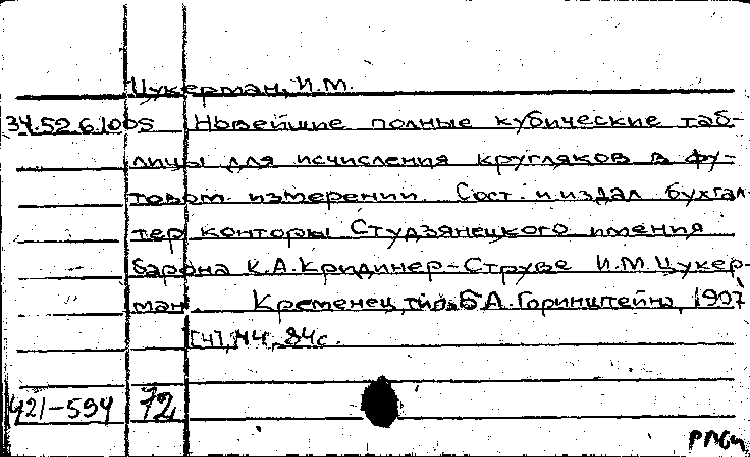 Цукерман, И.М.
34.52.6.1005 Новейшие полные кубические таб-
лицы для исчисления кругляков в фу-
товом измерении. Сост. и издал бухгал
тер конторы Студзянецкого имения
барона К.А. Кридинер-Струве И.М. Цукер-
ман. Кременец, тип. Б.А. Горинштейна, 1907
[4], 44, 84с.
421-594 72